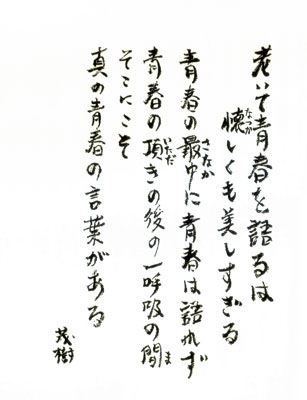 老いて青春を語るは
懐しくも美しすぎる
青春の最中に青春は語れず
青春の頂きの後の一呼吸の間
そこにこそ
真の青春の言葉がある
茂樹